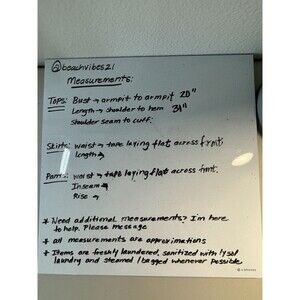 @beachvibes21
Measurements:
Tops: Bust → armpit to armpit 20"
Length → shoulder to hem 31"
Shoulder seam to cuff:
Skirts: waist → tape laying flat across front
Length
Pants: waist → tape laying flat across front.
Inseam
Rise →
* Need additional measurements? I'm here
to help. Please message
* all measurements are approximations
* Items are freshly laundered, sanitized with lysol
laundry and steamed / bagged whenever possible